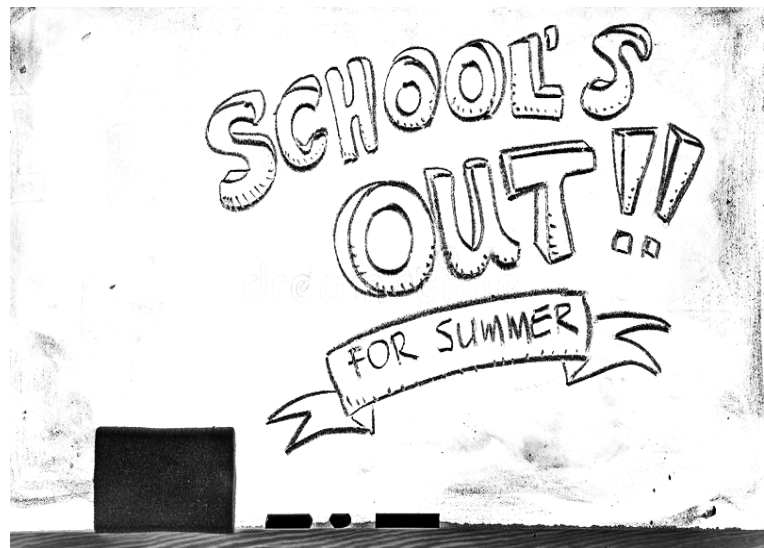 SCHOOL'S
OUT!!
FOR SUMMER